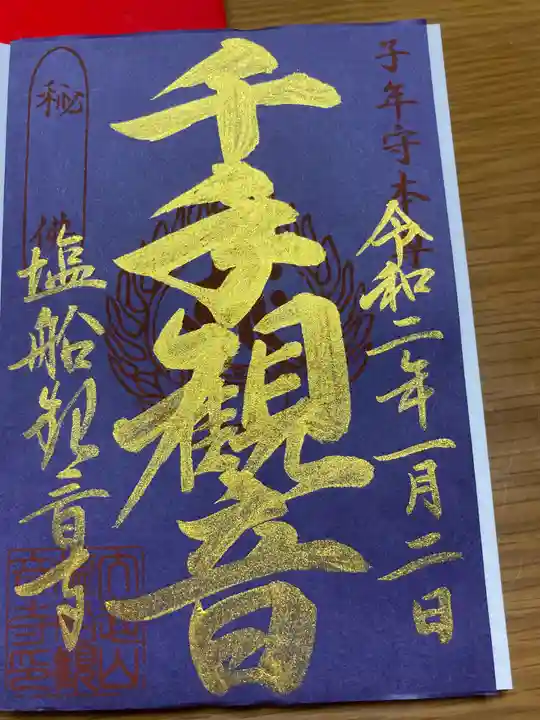 子年守本尊
令和二年一月二日
千手観音
秘佛
塩船観音寺